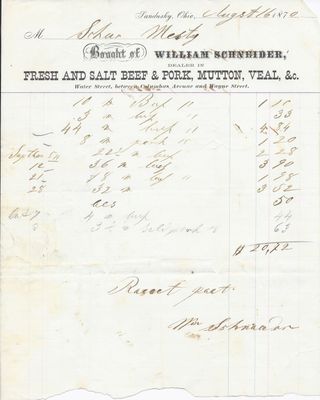 Sandusky, Ohio, August 16 1870
M Schar Mesty
Bought of WILLIAM SCHNEIDER,
DEALER IN
FRESH AND SALT BEEF & PORK, MUTTON, VEAL, &c.
Water Street, between Columbus Avenue and Wayne Street.
10 Beef " 1
3 " beef " 33
44 " beef " 4 84
8 " pork " 1 20
22½ " beef 2 28
12 36 " beef 3 90
25 18 " beef " 1 98
28 32 " 3 52
50
Oct 7 4 " beef 44
8 3½ " pork " 63
$ 20,72
Wm Schneider